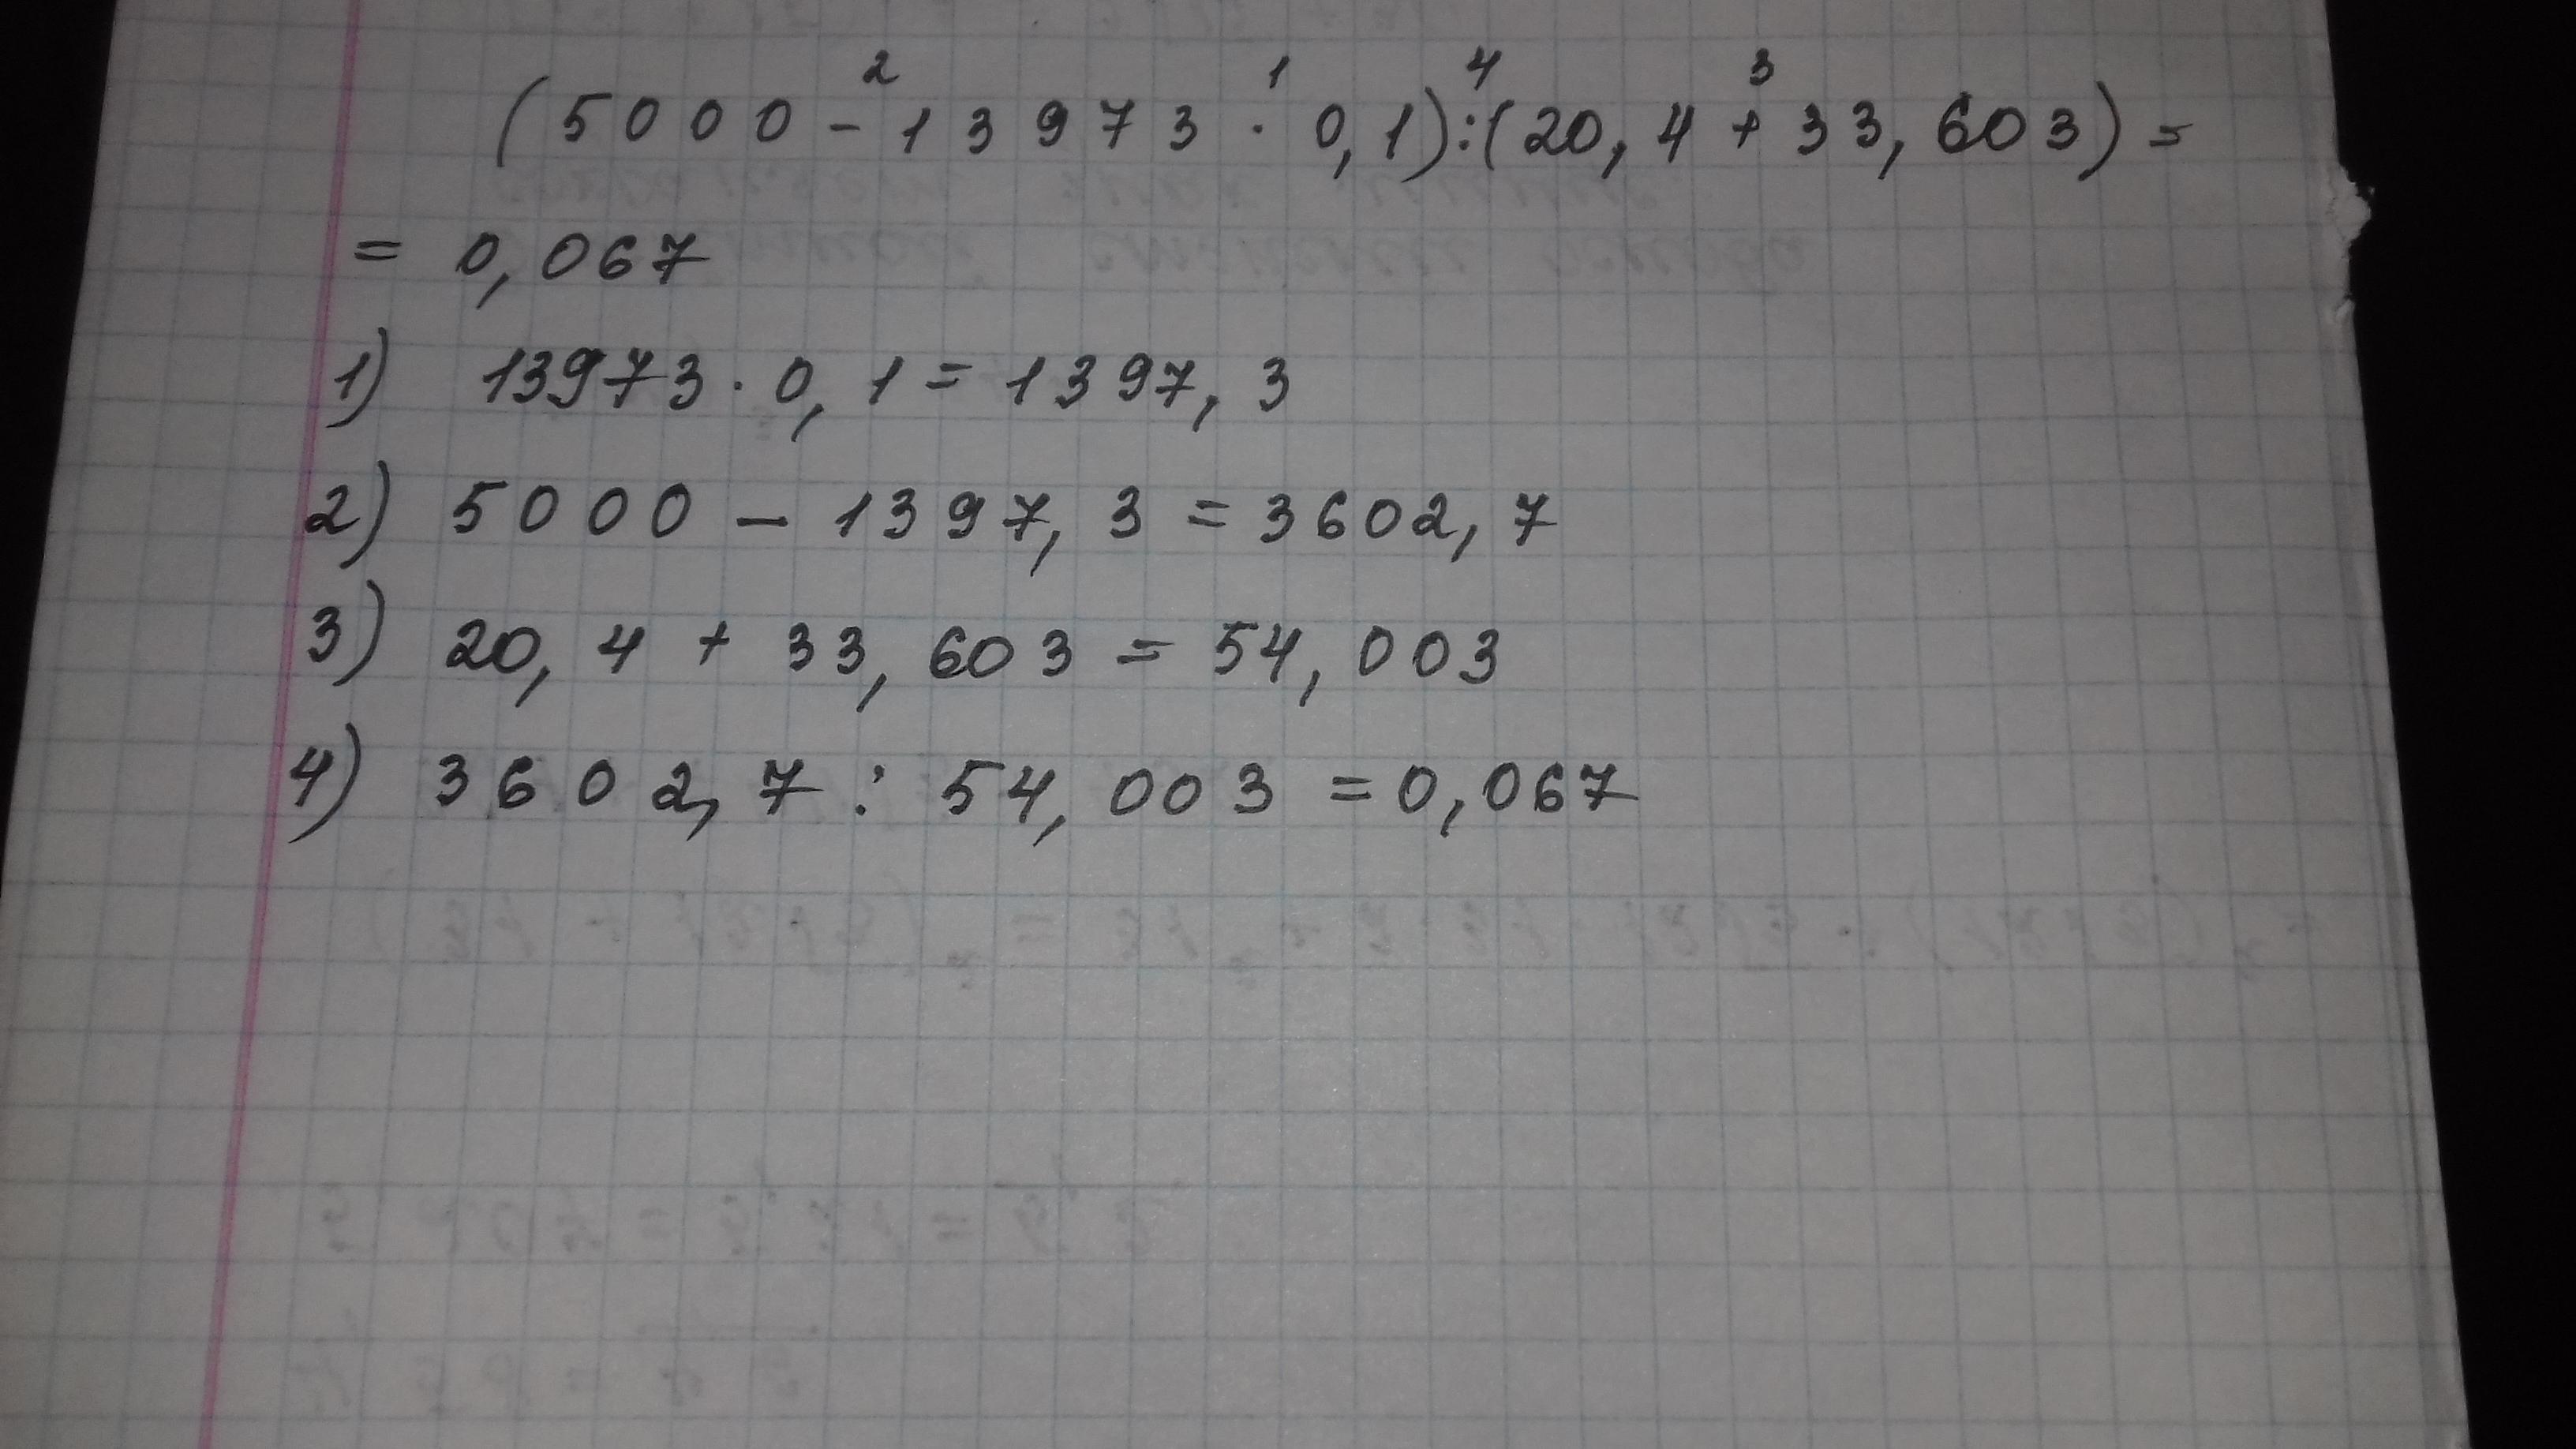 (5000 - 13973 · 0,1) : (20,4 + 33,603) =
= 0,067
1) 13973 · 0,1 = 1397,3
2) 5000 - 1397,3 = 3602,7
3) 20,4 + 33,603 = 54,003
4) 3602,7 : 54,003 = 0,067